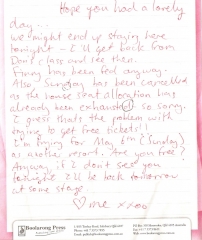 Hope you had a lovely
day...
We might end up staying here
tonight - I'll get back from
Don't class and see then.
Finny has been fed anyway.
Also, Sunday has been cancelled
as the house seat allocation has
already been exhausted! So sorry.
I guess that's the problem with
trying to get free tickets!!
I'm trying for May 8th (Sunday)
as another resort. Are you free?
Anyway, if I don't see you
tonight I'll be back tomorrow
at some stage.
♡ me xxoo
Boolarong Press